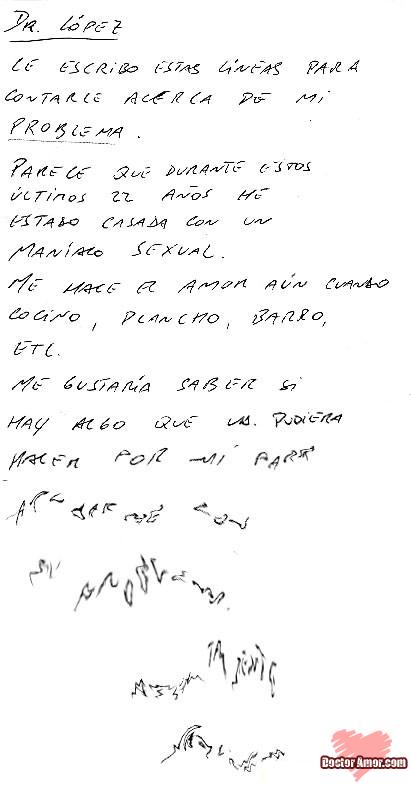 DR. LÓPEZ
LE ESCRIBO ESTAS LÍNEAS PARA
CONTARLE ACERCA DE MI
PROBLEMA.
PARECE QUE DURANTE ESTOS
ÚLTIMOS 22 AÑOS HE
ESTADO CASADA CON UN
MANÍACO SEXUAL.
ME HACE EL AMOR AÚN CUANDO
COCINO, PLANCHO, BARRO,
ETC.
ME GUSTARÍA SABER SI
HAY ALGO QUE UD. PUDIERA
HACER POR MÍ PARA
AYUDARME CON
MI
DoctorAmor.com